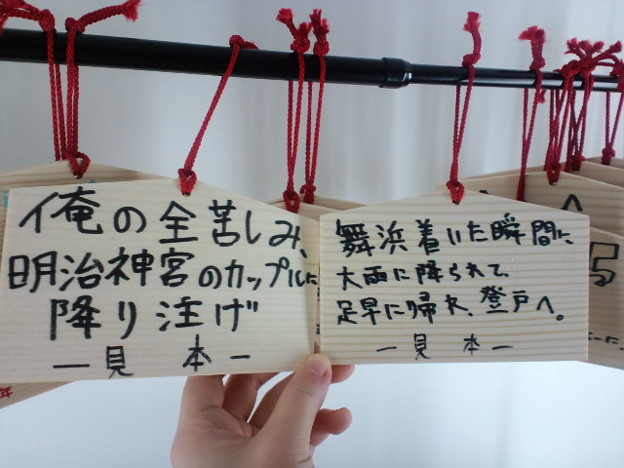 俺の全苦しみ、
明治神宮のカップルに
降り注げ
ー見 本ー
舞浜着いた瞬間に、
大雨に降られて、
足早に帰れ、登戸へ。
ー見 本ー